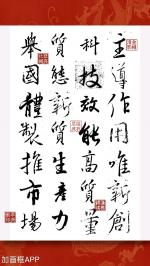 主導作用唯新創
科技效能高質量
質態新質生產力
舉國體製推市場
加画框APP